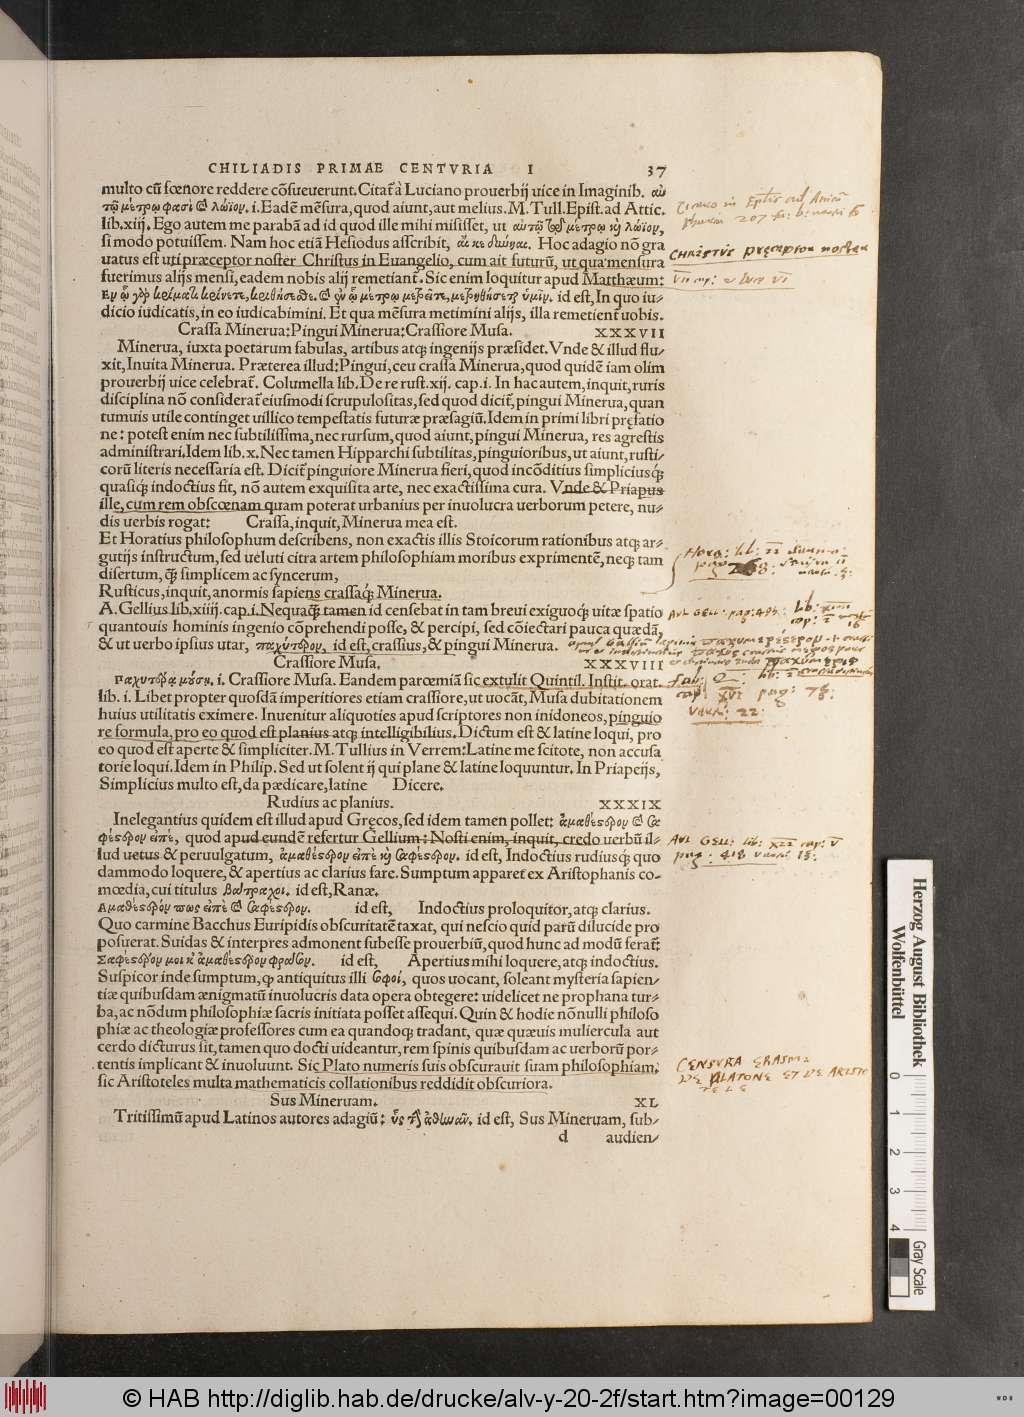 CHILIADIS PRIMAE CENTVRIA I 37
multo cũ fœnore reddere cõsueuerunt. Citat̃ à Luciano prouerbij uice in Imaginib. αὐ
τῷ μέτρῳ φασὶ καὶ λώϊον. i. Eadẽ mẽsura, quod aiunt, aut melius. M. Tull. Epist. ad Attic.
lib. xiij. Ego autem me parabã ad id quod ille mihi misisset, ut αὐτῷ τῷ μέτρῳ καὶ λώϊον,
si modo potuissem. Nam hoc etiã Hesiodus asscribit, αἴ κε δύνηαι. Hoc adagio nõ gra
uatus est uti præceptor noster Christus in Euangelio, cum ait futurũ, ut qua mensura
fuerimus alijs mensi, eadem nobis alij remetiant̃. Sic enim loquitur apud Matthæum:
Ἐν ᾧ γὰρ κρίματι κρίνετε, κριθήσεσθε. καὶ ἐν ᾧ μέτρῳ μετρεῖτε, μετρηθήσεται ὑμῖν. id est, In quo iu-
dicio iudicatis, in eo iudicabimini. Et qua mẽsura metimini alijs, illa remetient̃ uobis.
Crassa Minerua: Pingui Minerua: Crassiore Musa. XXXVII
Minerua, iuxta poetarum fabulas, artibus atq; ingenijs præsidet. Vnde & illud flu-
xit, Inuita Minerua. Præterea illud: Pingui, ceu crassa Minerua, quod quidẽ iam olim
prouerbij uice celebrat̃. Columella lib. De re rust. xij. cap. i. In hac autem, inquit, ruris
disciplina nõ considerat̃ eiusmodi scrupulositas, sed quod dicit̃, pingui Minerua, quan
tumuis utile continget uillico tempestatis futuræ præsagiũ. Idem in primi libri pręfatio
ne: potest enim nec subtilissima, nec rursum, quod aiunt, pingui Minerua, res agrestis
administrari. Idem lib. x. Nec tamen Hipparchi subtilitas, pinguioribus, ut aiunt, rusti-
corũ literis necessaria est. Dicit̃ pinguiore Minerua fieri, quod incõditius simpliciusq́;
quasiq; indoctius fit, nõ autem exquisita arte, nec exactissima cura. Vnde & Priapus
ille, cum rem obscœnam quam poterat urbanius per inuolucra uerborum petere, nu-
dis uerbis rogat: Crassa, inquit, Minerua mea est.
Et Horatius philosophum describens, non exactis illis Stoicorum rationibus atq; ar-
gutijs instructum, sed ueluti citra artem philosophiam moribus exprimentẽ, neq; tam
disertum, q̃ simplicem ac syncerum,
Rusticus, inquit, anormis sapiens crassaq́; Minerua.
A. Gellius lib. xiiij. cap. i. Nequaq̃ tamen id censebat in tam breui exiguoq; uitæ spatio
quantouis hominis ingenio cõprehendi posse, & percipi, sed cõiectari pauca quædã,
& ut uerbo ipsius utar, παχύτερον, id est, crassius, & pingui Minerua.
Crassiore Musa. XXXVIII
Παχυτέρᾳ μούσῃ. i. Crassiore Musa. Eandem parœmiã sic extulit Quintil. Instit. orat.
lib. i. Libet propter quosdã imperitiores etiam crassiore, ut uocãt, Musa dubitationem
huius utilitatis eximere. Inuenitur aliquoties apud scriptores non inidoneos, pinguio
re formula, pro eo quod est planius atq; intelligibilius. Dictum est & latine loqui, pro
eo quod est aperte & simpliciter. M. Tullius in Verrem: Latine me scitote, non accusa
torie loqui. Idem in Philip. Sed ut solent ij qui plane & latine loquuntur. In Priapeijs,
Simplicius multo est, da pædicare, latine Dicere.
Rudius ac planius. XXXIX
Inelegantius quidem est illud apud Gręcos, sed idem tamen pollet: ἀμαθέστερον καὶ σα
φέστερον εἰπέ, quod apud eundẽ refertur Gellium: Nosti enim, inquit, credo uerbũ il-
lud uetus & peruulgatum, ἀμαθέστερον εἰπὲ καὶ σαφέστερον. id est, Indoctius rudiusq; quo
dammodo loquere, & apertius ac clarius fare. Sumptum apparet̃ ex Aristophanis co-
mœdia, cui titulus βάτραχοι. id est, Ranæ.
Ἀμαθέστερόν πως εἰπὲ καὶ σαφέστερον. id est, Indoctius proloquitor, atq; clarius.
Quo carmine Bacchus Euripidis obscuritatẽ taxat, qui nescio quid parũ dilucide pro
posuerat. Suidas & interpres admonent subesse prouerbiũ, quod hunc ad modũ ferat̃:
Σαφέστερόν μοι κἀμαθέστερον φράσον. id est, Apertius mihi loquere, atq; indoctius.
Suspicor inde sumptum, q̃ antiquitus illi σοφοί, quos uocant, soleant mysteria sapien-
tiæ quibusdam ænigmatũ inuolucris data opera obtegere: uidelicet ne prophana tur-
ba, ac nõdum philosophiæ sacris initiata posset assequi. Quin & hodie nõnulli philoso
phiæ ac theologiæ professores cum ea quandoq; tradant, quæ quæuis muliercula aut
cerdo dicturus sit, tamen quo docti uideantur, rem spinis quibusdam ac uerborũ por-
tentis implicant & inuoluunt. Sic Plato numeris suis obscurauit suam philosophiam:
sic Aristoteles multa mathematicis collationibus reddidit obscuriora.
Sus Mineruam. XL
Tritissimũ apud Latinos autores adagiũ: ὗς τὴν ἀθηνᾶν. id est, Sus Mineruam, sub-
d audien-
CHRISTVS pręceptor noster
VII cap: et Luce VI
AVL GELL: lib: XII cap: V
pag: 418 versu 13:
CENSVRA ERASMI
DE PLATONE ET DE ARISTO
TELE
Herzog August Bibliothek
Wolfenbüttel
0 1 2 3 4
Gray Scale
© HAB http://diglib.hab.de/drucke/alv-y-20-2f/start.htm?image=00129